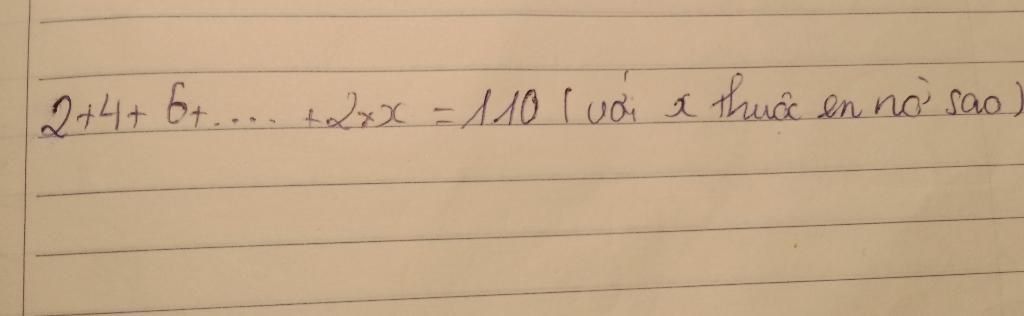 2+4+ 6+.... +2×x = 110 (với x thuộc en nờ sao)